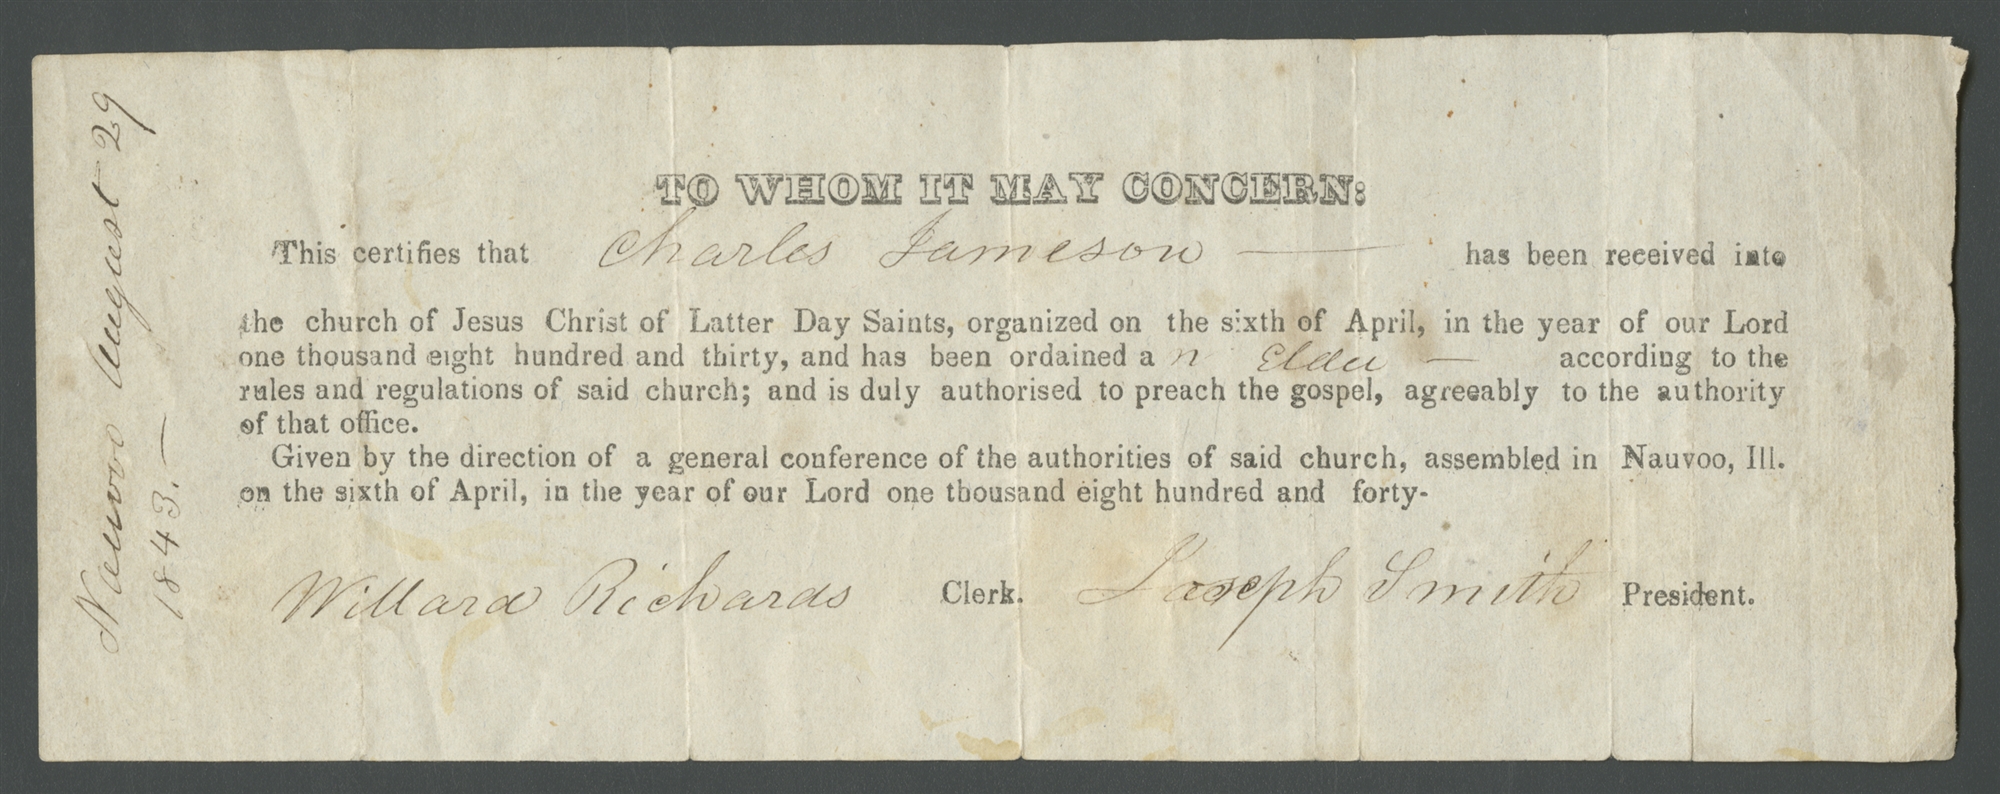 Nauvoo August 29
1843.—
TO WHOM IT MAY CONCERN:
This certifies that Charles Jameson — has been received into
the church of Jesus Christ of Latter Day Saints, organized on the sixth of April, in the year of our Lord
one thousand eight hundred and thirty, and has been ordained a n Elder — according to the
rules and regulations of said church; and is duly authorised to preach the gospel, agreeably to the authority
of that office.
Given by the direction of a general conference of the authorities of said church, assembled in Nauvoo, Ill.
on the sixth of April, in the year of our Lord one thousand eight hundred and forty-
Willard Richards Clerk. Joseph Smith President.